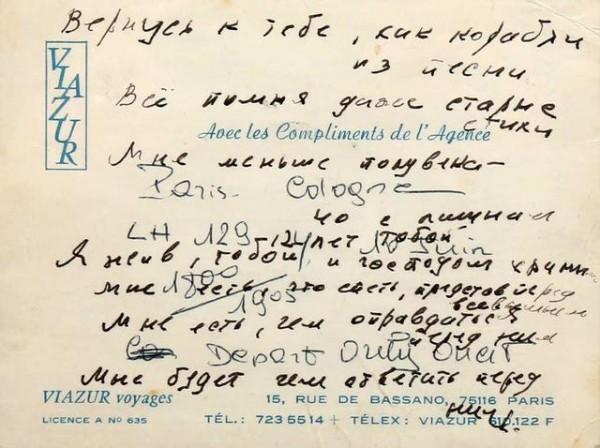 Вернусь к тебе, как корабли
из песни
Всё помня даже старые
стихи
VIAZUR
Avec les Compliments de l'Agence
Мне меньше полувека –
Paris - Cologne
но с лишним
LH 129 12 лет тобой 18 Juin
Я жив, тобой и господом храним
1800
1905
Мне есть, что спеть, представ перед
всевышним
Мне есть, чем оправдаться
перед ним
Depart Orly Ouest
Мне будет чем ответить перед
ним.
VIAZUR voyages
LICENCE A N° 635
15, RUE DE BASSANO, 75116 PARIS
TÉL.: 723 55 14 + TÉLEX: VIAZUR 610.122 F